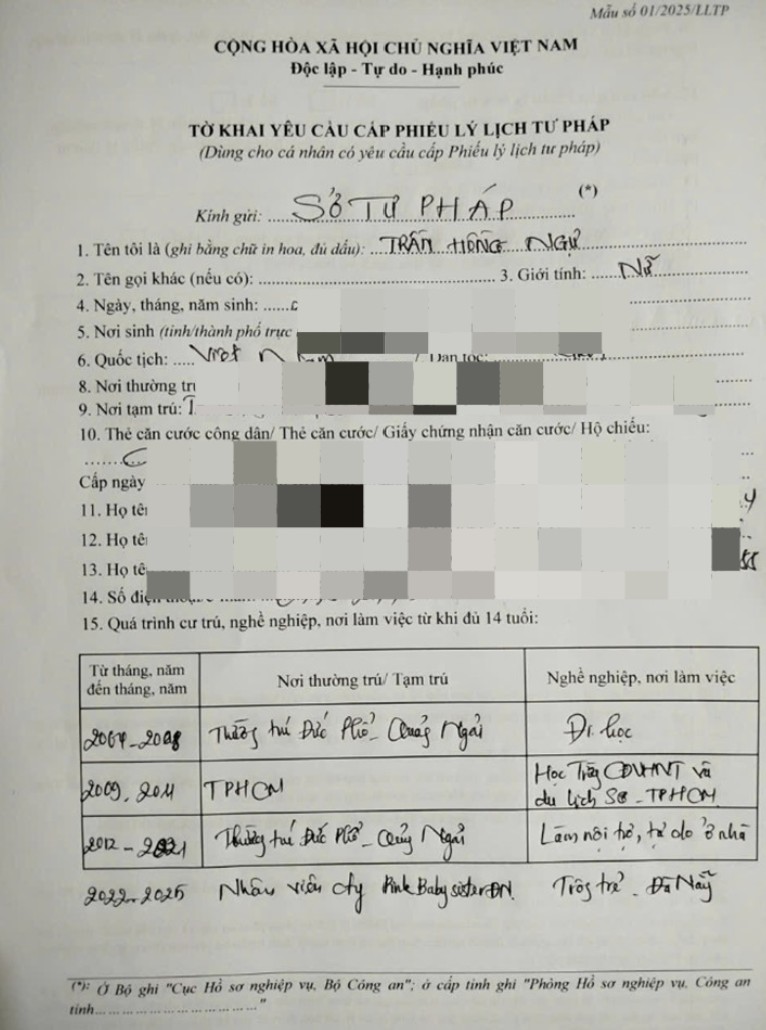 Mẫu số 01/2025/LLTP
CỘNG HÒA XÃ HỘI CHỦ NGHĨA VIỆT NAM
Độc lập - Tự do - Hạnh phúc
TỜ KHAI YÊU CẦU CẤP PHIẾU LÝ LỊCH TƯ PHÁP
(Dùng cho cá nhân có yêu cầu cấp Phiếu lý lịch tư pháp)
Kính gửi: SỞ TƯ PHÁP (*)
1. Tên tôi là (ghi bằng chữ in hoa, đủ dấu): TRẦN HỒNG NGỰ
2. Tên gọi khác (nếu có): 3. Giới tính: Nữ
4. Ngày, tháng, năm sinh:
5. Nơi sinh (tỉnh/thành phố trực
6. Quốc tịch: Việt Nam / Dân tộc:
8. Nơi thường trú
9. Nơi tạm trú:
10. Thẻ căn cước công dân/ Thẻ căn cước/ Giấy chứng nhận căn cước/ Hộ chiếu:
Cấp ngày
11. Họ tên
12. Họ tên
13. Họ tê
14. Số điện
15. Quá trình cư trú, nghề nghiệp, nơi làm việc từ khi đủ 14 tuổi:
Từ tháng, năm đến tháng, năm Nơi thường trú/ Tạm trú Nghề nghiệp, nơi làm việc
2008 Thường trú Đức Phổ - Quảng Ngãi Đi học
2009 - 2011 TPHCM Học Trường CĐVHNT và
du lịch SG - TPHCM
2012 - 2021 Thường trú Đức Phổ - Quảng Ngãi Làm nội trợ, tự do ở nhà
2022 - 2025 Nhân viên cty Pink Baby sister ĐN. Trông trẻ - Đà Nẵng
(*): Ở Bộ ghi "Cục Hồ sơ nghiệp vụ, Bộ Công an"; ở cấp tỉnh ghi "Phòng Hồ sơ nghiệp vụ, Công an
tỉnh.............................."